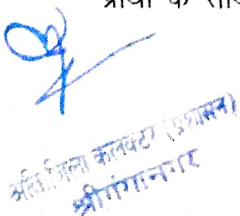 प्रार्थी के
अति. जिला कलक्टर (प्रशासन)
श्रीगंगानगर